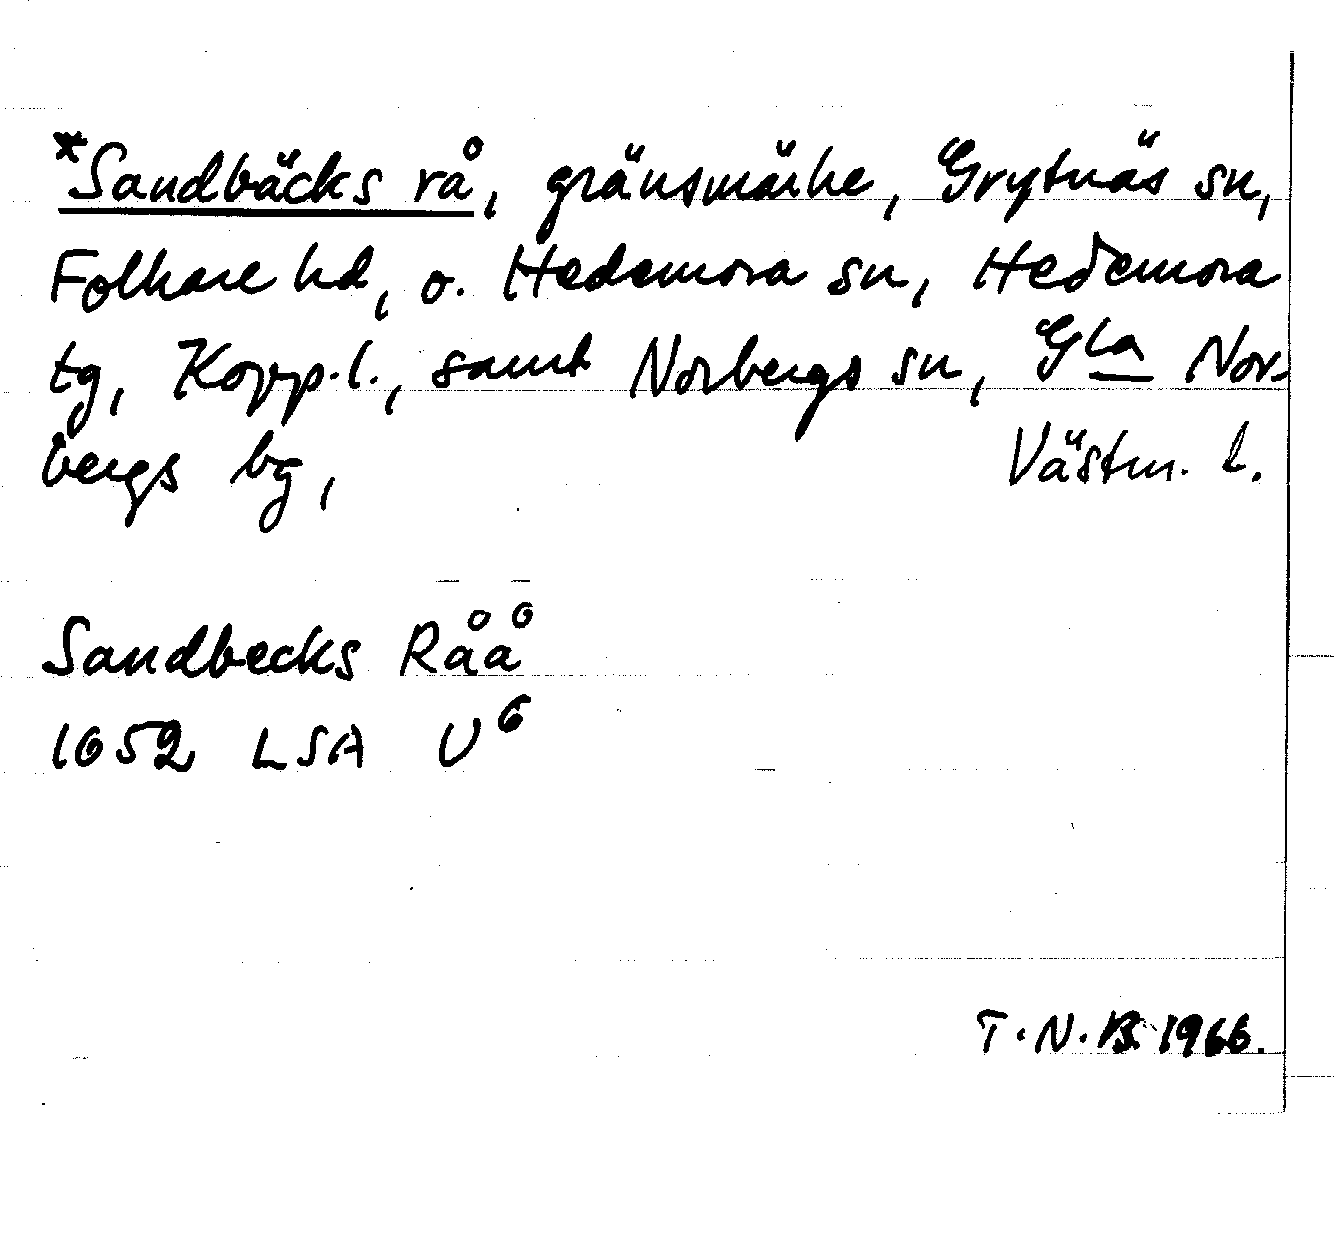 *Sandbäcks rå, gränsmärke, Grytnäs sn,
Folkare hd, o. Hedemora sn, Hedemora
tg, Kopp.l., samt Norbergs sn, Gla Nor-
bergs bg, Västm. l.
Sandbecks Råå
1652 LSA U⁶
T.N.B. 1966.